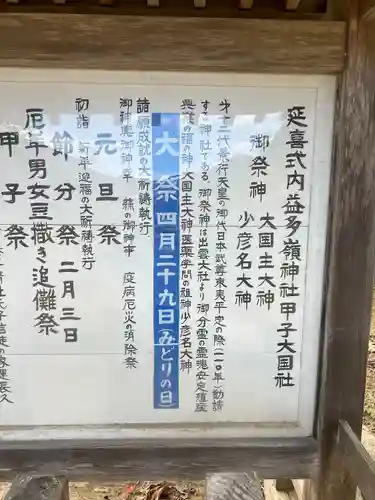 延喜式内益多嶺神社甲子大国社
御祭神
大国主大神
少彦名大神
才十二代景行天皇の御代日本武尊東夷平定の際(一一〇年)勧請
する神社である。御祭神は出雲大社より御分霊の霊魂安定殖産
興業の福の神大国主大神医薬学問の祖神少彦名大神
大祭 四月二十九日(みどりの日)
諸願成就の大祈祷執行
御神輿御神幸 熊の御神事 疫病厄火の消除祭
元旦祭
初詣 新年迎福の大祈祷執行
節分祭 二月三日
厄年男女豆撒き追儺祭
甲子祭